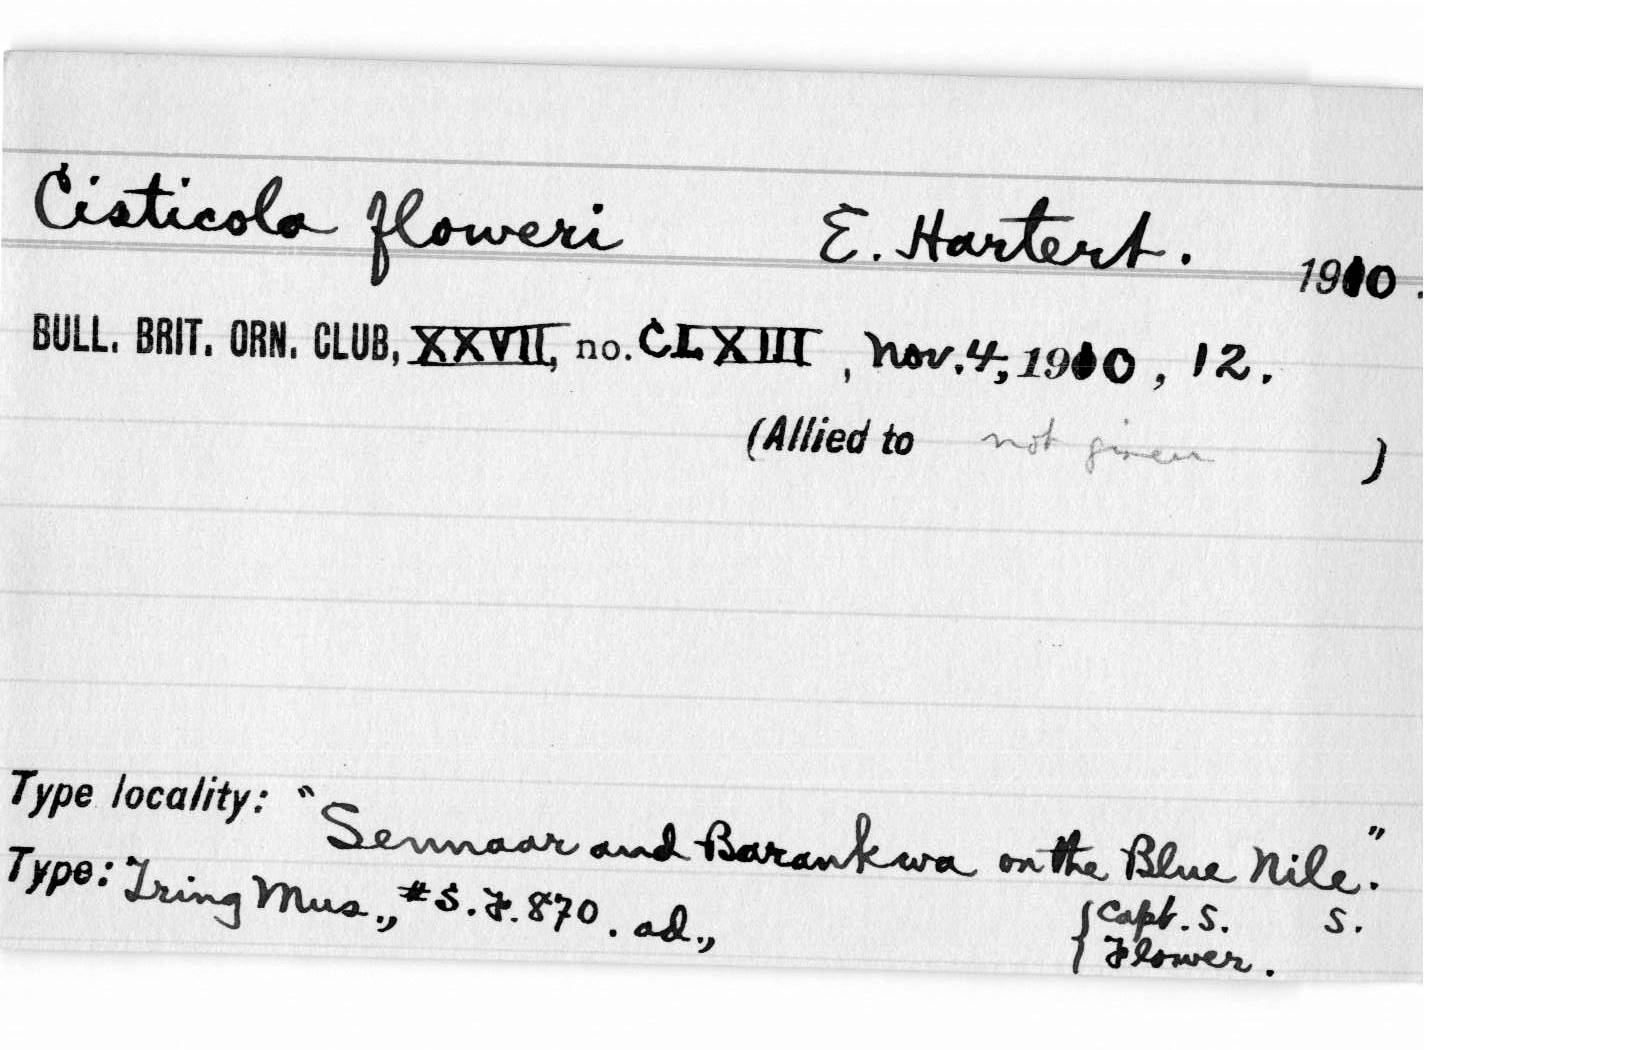 Cisticola floweri E. Hartert. 1910.
BULL. BRIT. ORN. CLUB, XXVII, no. CLXIII, Nov. 4, 1910, 12.
(Allied to not given )
Type locality: "Sennaar and Barankwa on the Blue Nile."
Type: Tring Mus., #S.F. 870. ad., {Capt. S. S.
Flower.